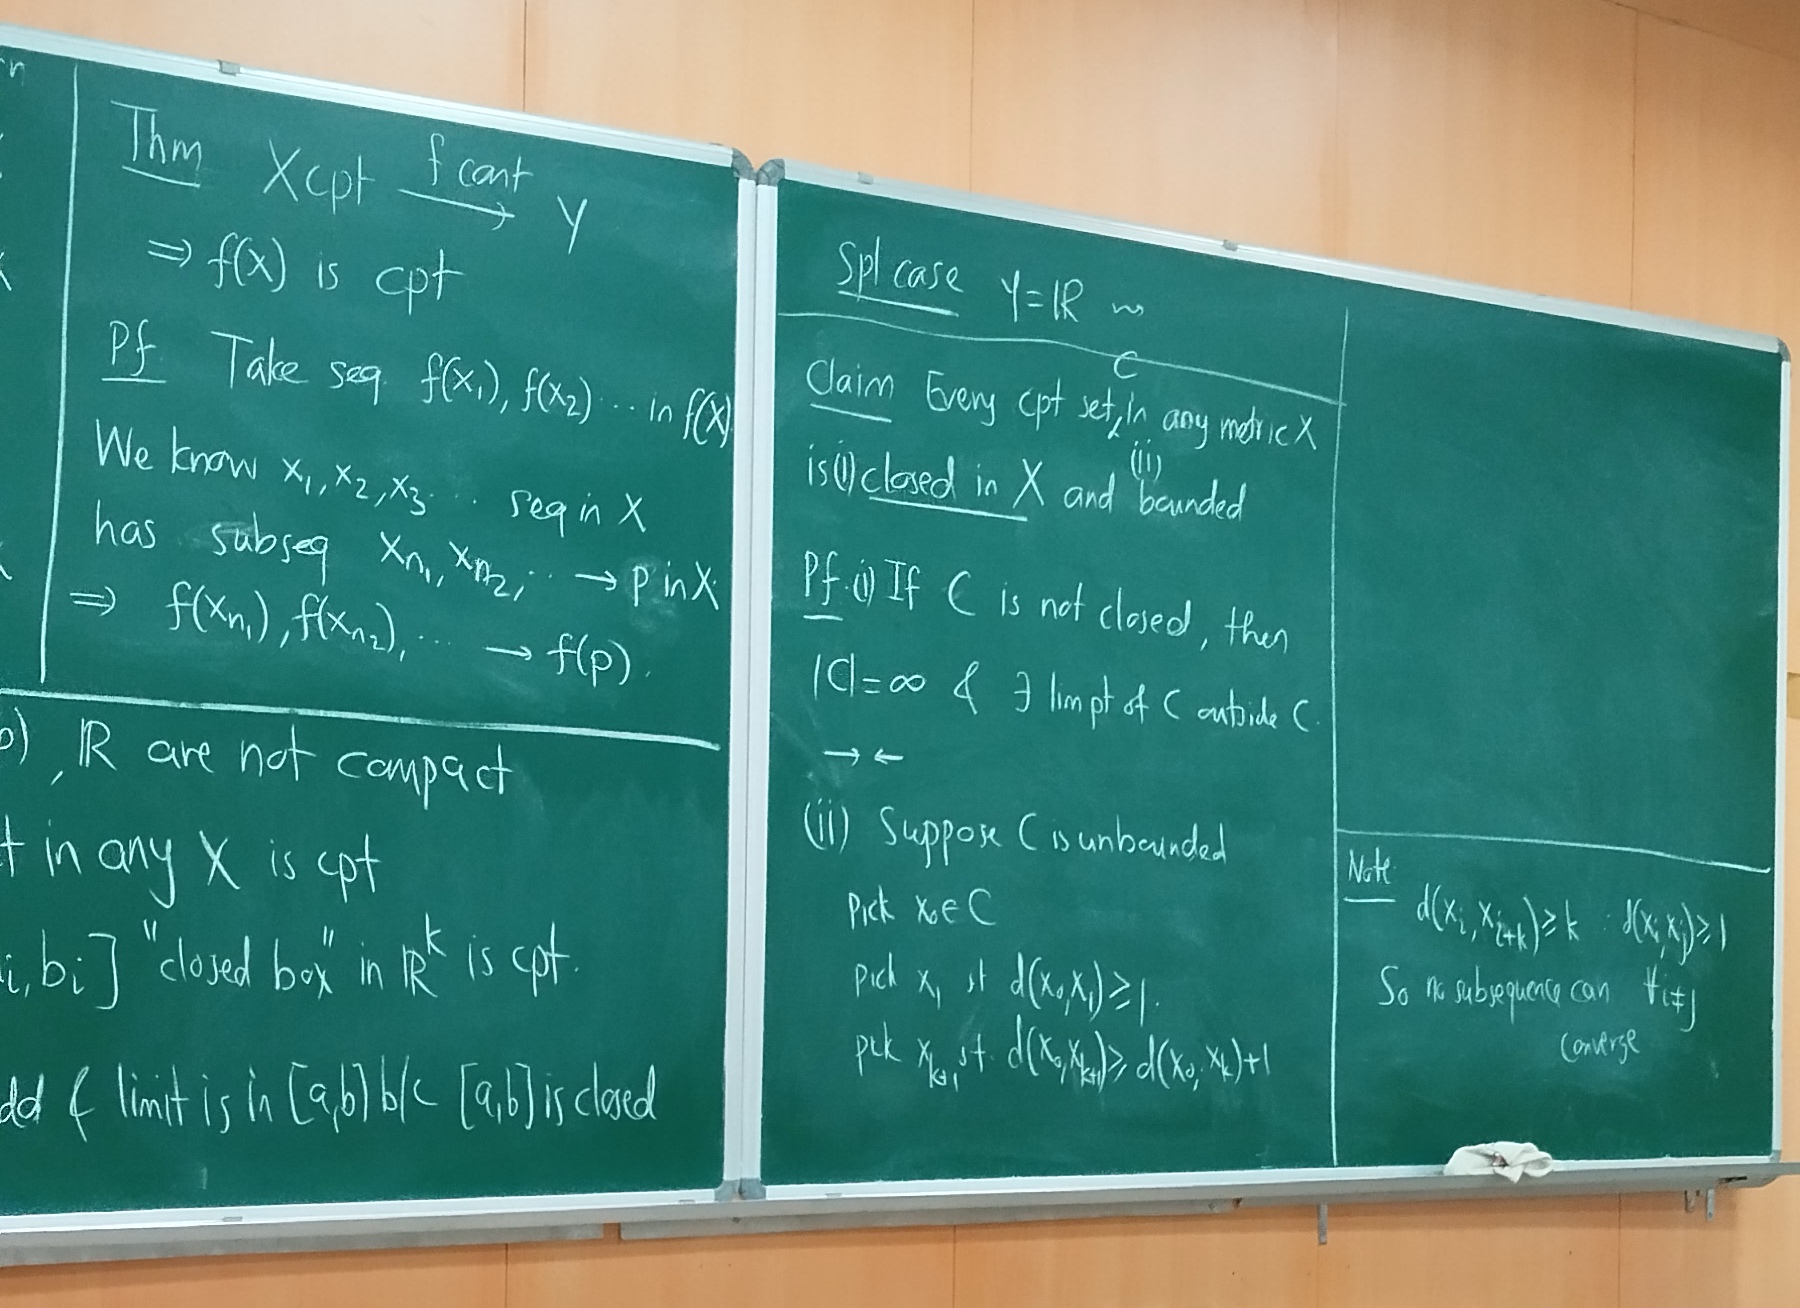 Thm X cpt f cont → Y
⇒ f(X) is cpt
Pf Take seq f(x₁), f(x₂) ... in f(X)
We know x₁, x₂, x₃ ... seq in X
has subseq xₙ₁, xₙ₂, ... → p in X.
⇒ f(xₙ₁), f(xₙ₂), ... → f(p).
), ℝ are not compact
t in any X is cpt
i, bi] "closed box" in ℝᵏ is cpt.
dd & limit is in [a,b] b/c [a,b] is closed
Spl case Y=ℝ ⇝
Claim Every cpt set C in any metric X
is (i) closed in X and (ii) bounded
Pf. (i) If C is not closed, then
|C|=∞ & ∃ lim pt of C outside C.
→←
(ii) Suppose C is unbounded
pick x₀ ∈ C
pick x₁ st d(x₀,x₁) ≥ 1.
pick xₖ₊₁ st. d(x₀,xₖ₊₁) ≥ d(x₀,xₖ)+1
Note
d(xᵢ, xᵢ₊ₖ) ≥ k ∴ d(xᵢ,xⱼ) ≥ 1
So no subsequence can ∀ i≠j
converge